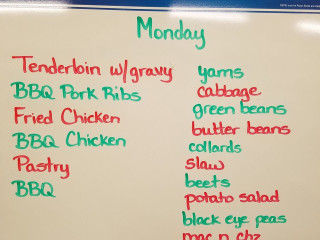 Monday
Tenderloin w/gravy
BBQ Pork Ribs
Fried Chicken
BBQ Chicken
Pastry
BBQ
yams
cabbage
green beans
butter beans
collards
slaw
beets
potato salad
black eye peas
mac n chz